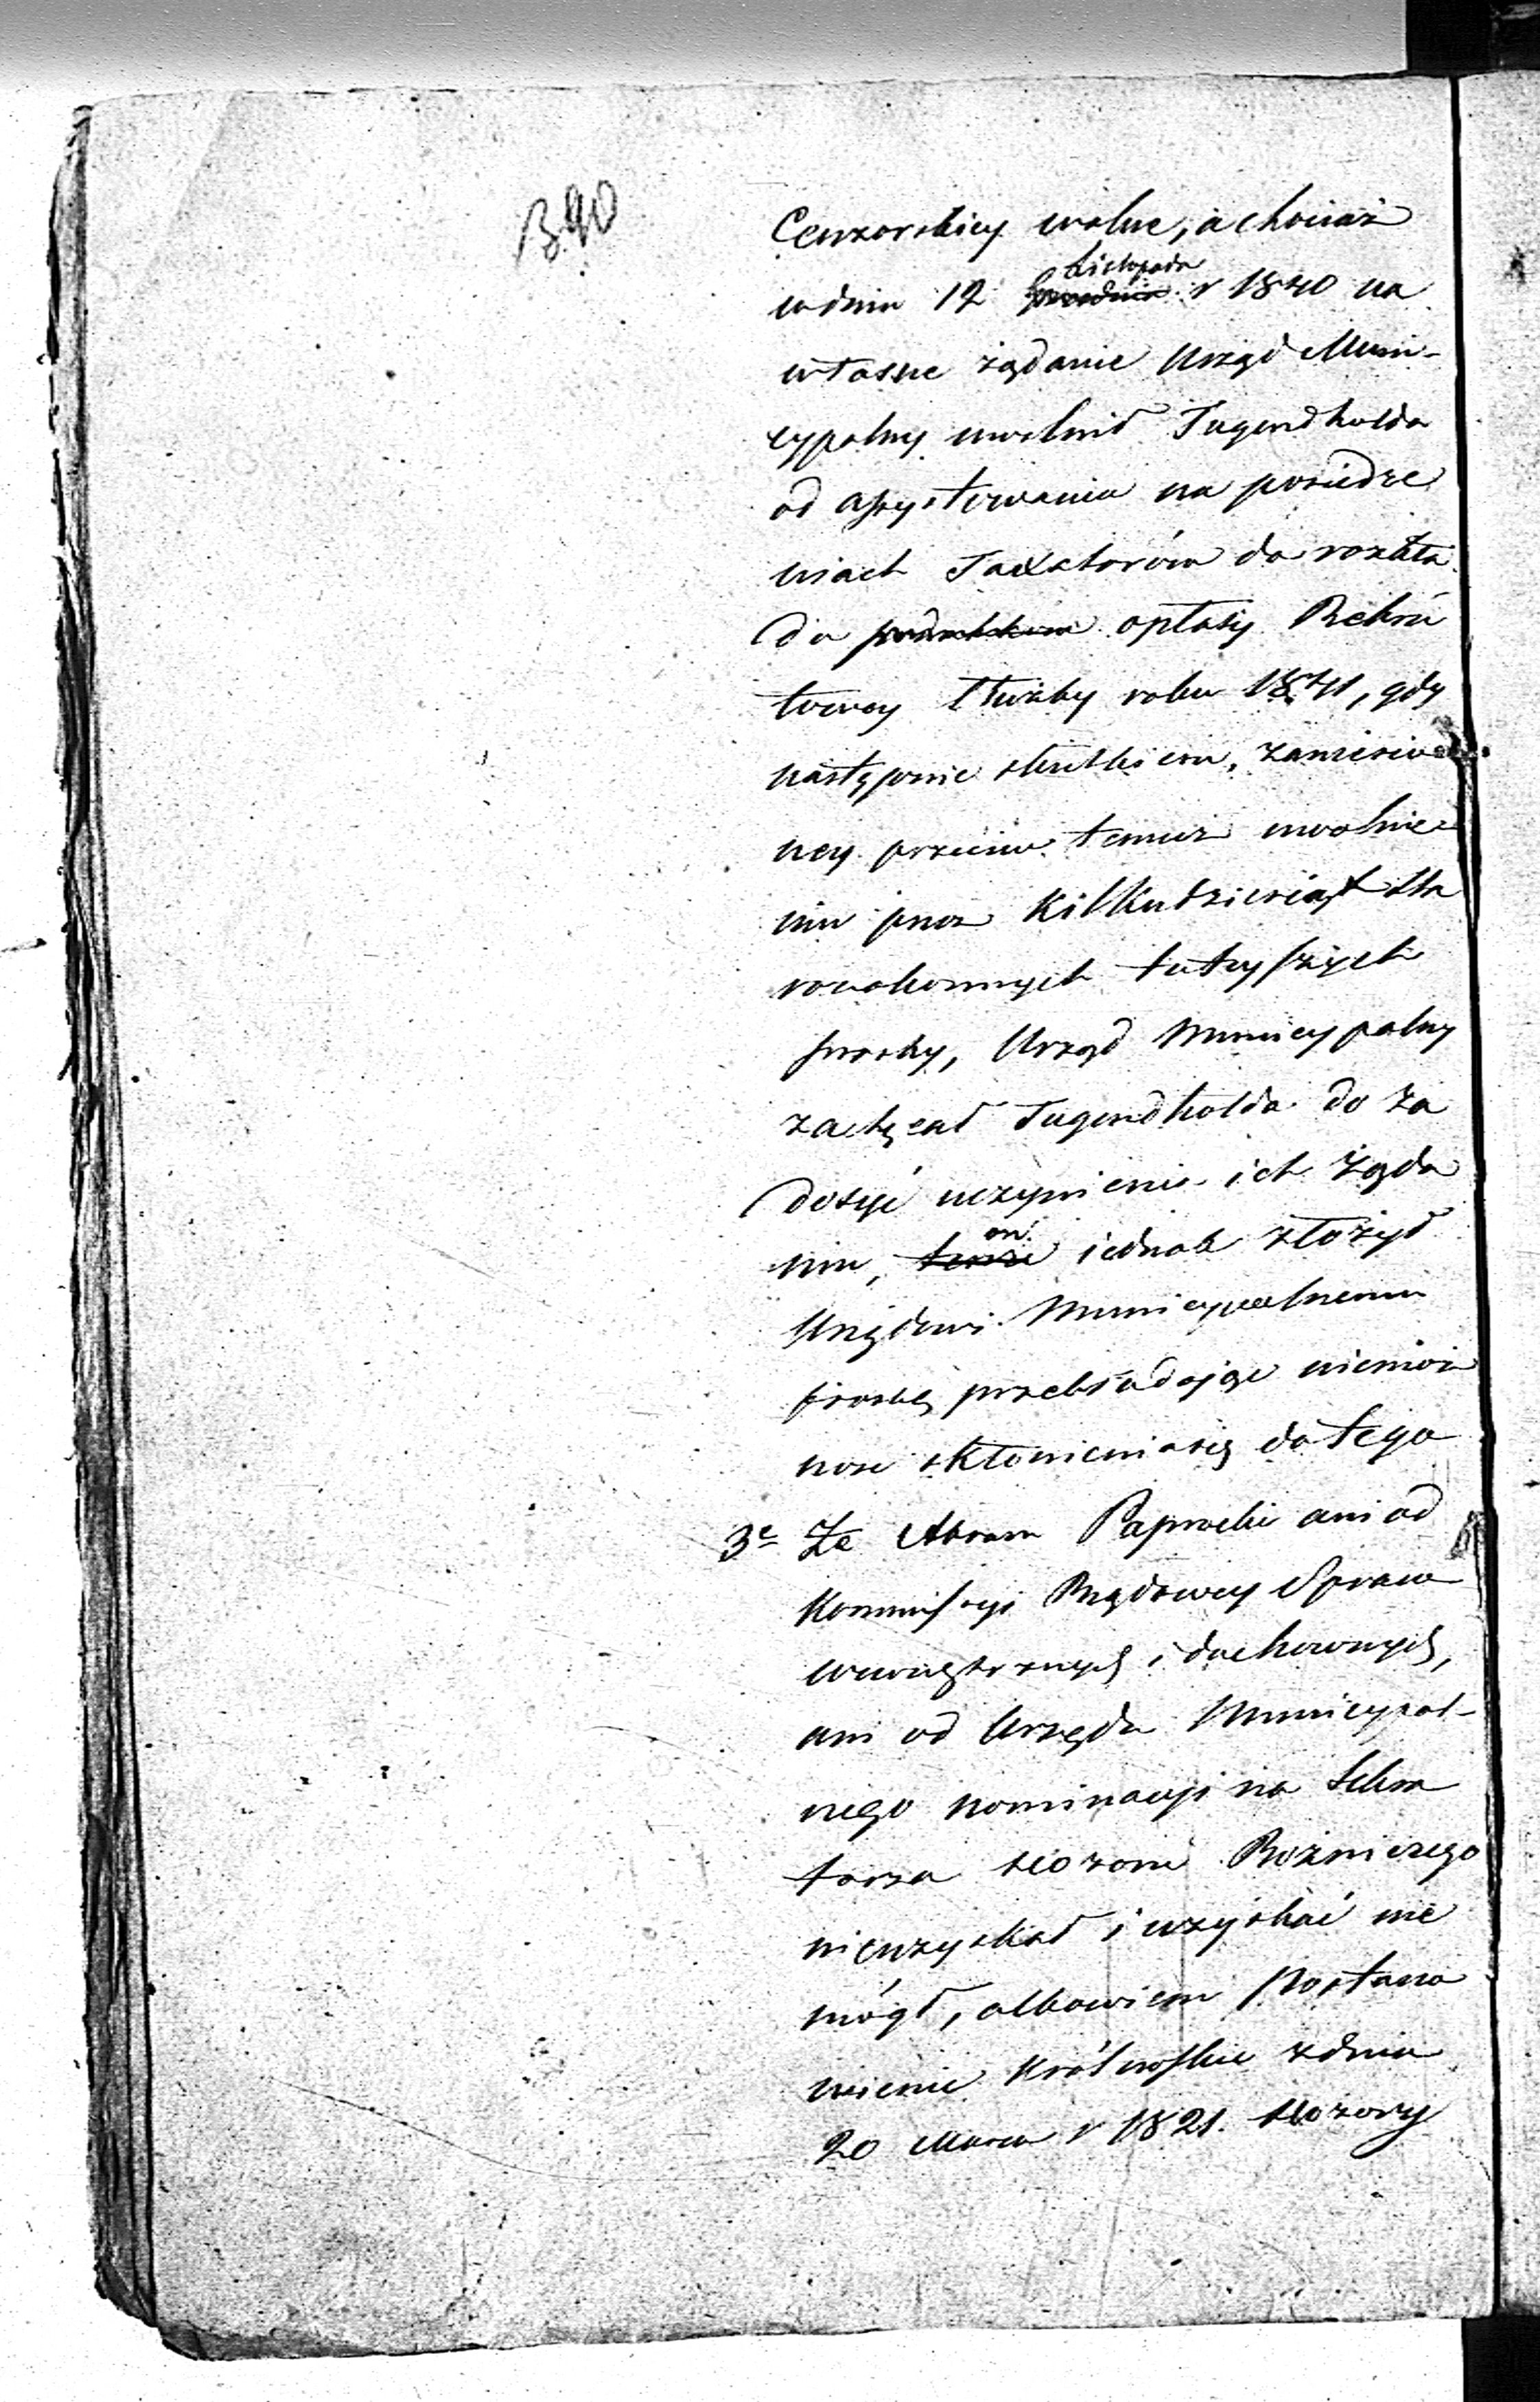 390
Cenzorskiey wolne, a chociaż
w dniu 12 Listopada r 1840 na
własne żądanie Urząd Muni-
cypalny uwolnił Tugendholda
od assystowania na posiedze
niach Taxatorów do rozkła
du opłaty Rekru
towey Służby roku 1841, gdy
następnie skutkiem, zaniesio
ney przeciw temuż uwolnie
niu przez kilkudziesiąt Sta
rozakonnych tutejszych
prośby, Urząd Municypalny
zachęcał Tugendholda do za
dosyć uczynienia ich żąda
niu, on iednak złożył
Urzędowi Municypalnemu
prośbę przekładając niemoż
ność skłonienia się do tego
3e Że Abram Paprocki ani od
Kommissyi Rządowey Spraw
wewnętrznych i duchownych,
ani od Urzędu Municypal-
nego nominacyi na Sekre
tarza Dozoru Bożniczego
nieuzyskał i uzyskać nie
mógł, albowiem Postano
wienie Królewskie z dnia
20 Marca r 1821. Dozory